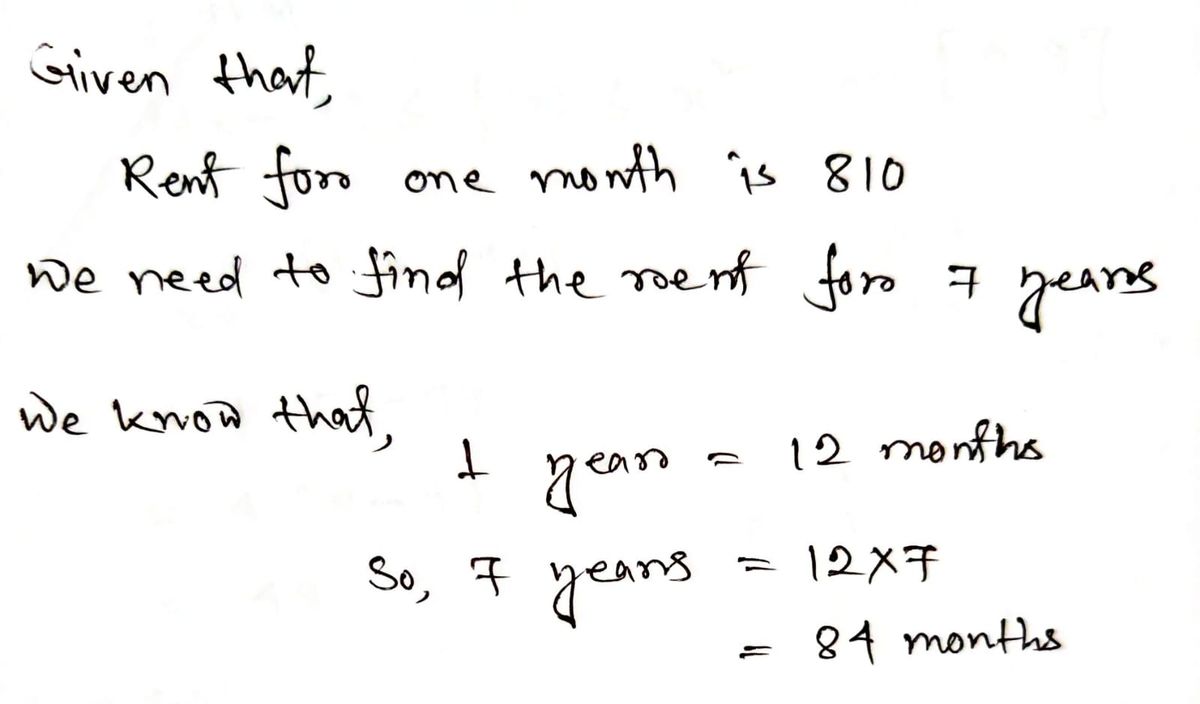 Given that,
Rent for one month is 810
We need to find the rent for 7 years
We know that,
1 year = 12 months
So, 7 years = 12×7
= 84 months